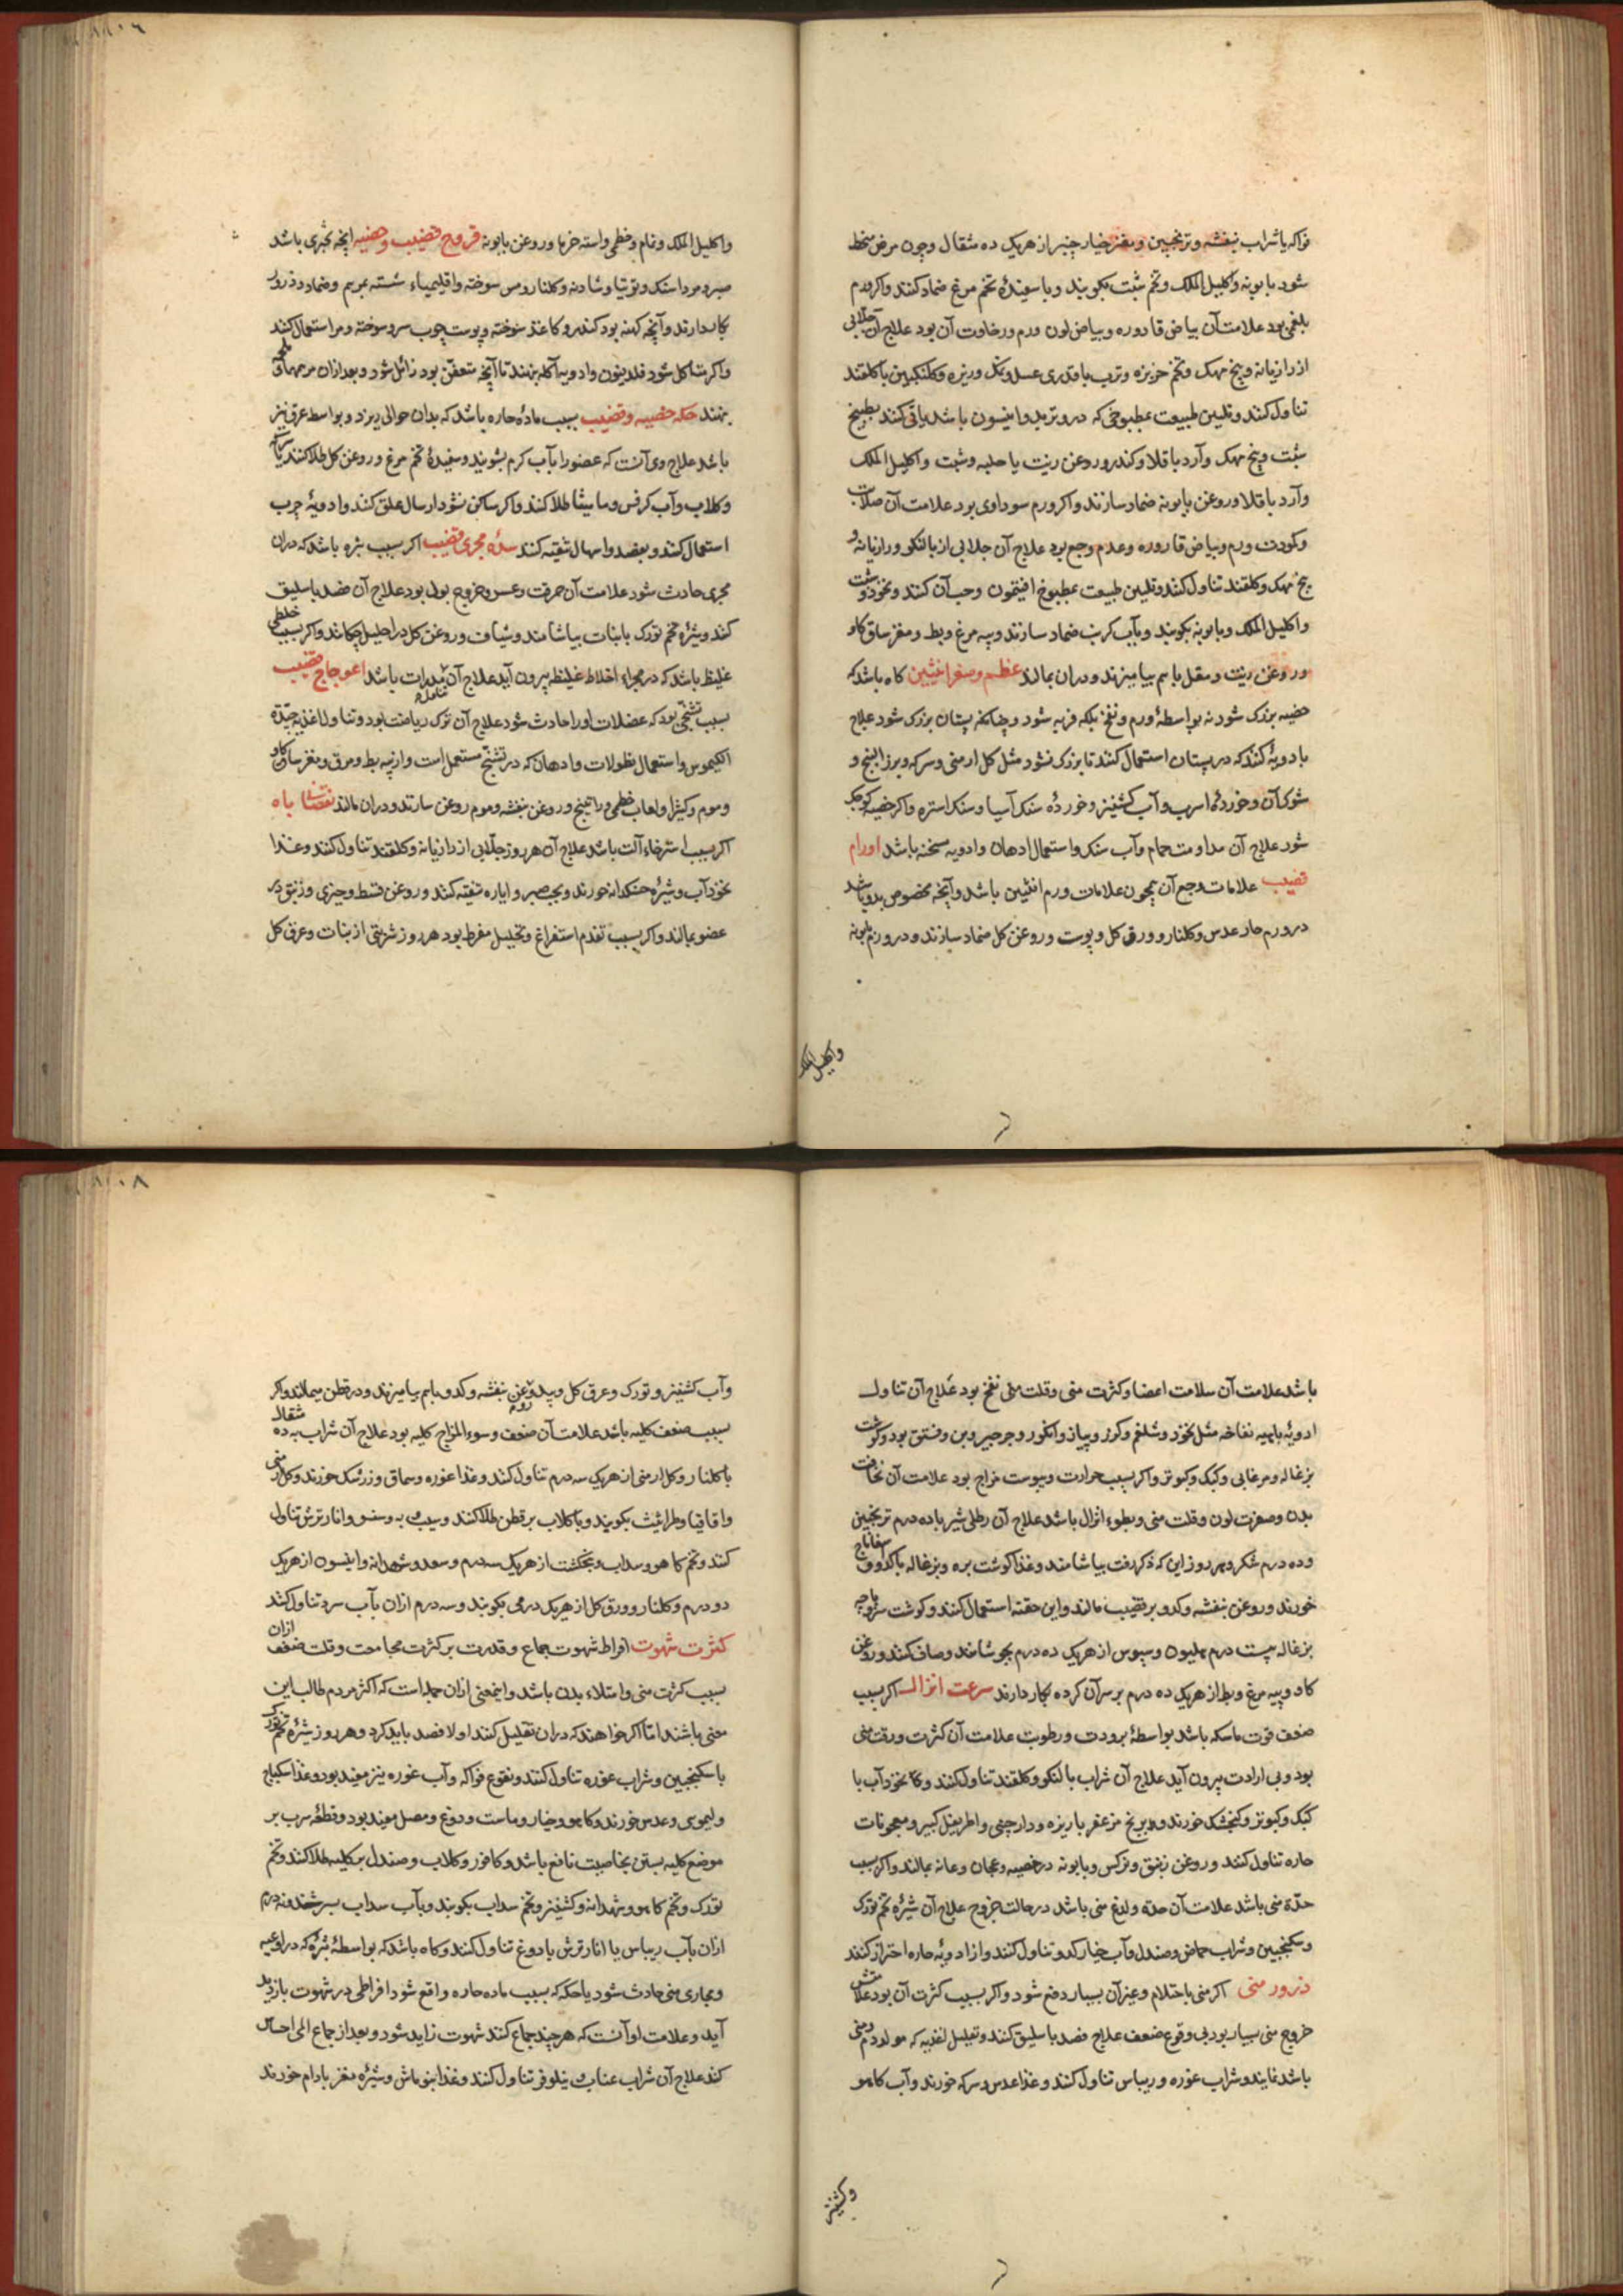 فواکه یا شراب بنفشه و ترنجبین و مغز خیار چنبر از هر یک ده مثقال و چون مرض منحط
شود بابونه و اکلیل الملک و تخم شبت بکوبند و با سفیدهٔ تخم مرغ ضماد کنند و اکر ورم
بلغمی بود علامت آن بیاض قاروره و بیاض لون ورم و رخاوت آن بود علاج آن جلابی
از رازیانه و بیخ مهک و تخم خربزه و ترب با قدری عسل و نمک و زیره و کلنکبین یا کلقند
تناول کنند و تلیین طبیعت بمطبوخی که درو تربد و انیسون باشد یا قی کنند بطبیخ
شبت و بیخ مهک و آرد باقلا و کندر و روغن زیت یا حلبه و شبت و اکلیل الملک
و آرد باقلا و روغن بابونه ضماد سازند و اکر ورم سوداوی بود علامت آن صلابت
و کمودت ورم و بیاض قاروره و عدم وجع بود علاج آن جلابی از بالنکو و رازیانه و
بیخ مهک و کلقند تناول کنند و تلیین طبیعت بمطبوخ افتیمون و حب آن کنند و نخود و شبت
و اکلیل الملک و بابونه بکوبند و بآب کرنب ضماد سازند و پیه مرغ و بط و مغز ساق کاو
و روغن زیت و مقل باهم بیامیزند و دران بمالند عظم و صغر انثیین کاه باشد که
خصیه بزرک شود نه بواسطهٔ ورم و نفخ بلکه فربه شود و چنانکه پستان بزرک شود علاج
بادویهٔ کنند که در پستان استعمال کنند تا بزرک نشود مثل کل ارمنی و سرکه و بزر البنج و
شوکران و خوردهٔ اسرب و آب کشنیز و خوردهٔ سنک آسیا و سنک استره و اکر خصیه کوچک
شود علاج آن مداومت حمام و آب سنک و استعمال ادهان و ادویه مسخنه باشد اورام
قضیب علامات وجع آن همچون علامات ورم انثیین باشد و آنچه مخصوص بدو باشد
در ورم حار عدس و کلنار و ورق کل و پوست و روغن کل ضماد سازند و در ورم بابونه
و اکلیل الملک
و اکلیل الملک و نمام و خطمی و استه خرما و روغن بابونه قروح قضیب و خصیه آنچه بثری باشد
صبر و مرداسنک و توتیا و شادنه و کلنار و مس سوخته و اقلیمیاء شسته مرهم و ضماد و ذرور
بکار دارند و آنچه کهنه بود کندر و کاغذ سوخته و پوست چوب سرو سوخته و مر استعمال کنند
و اکر متاکل شود فلدفیون و ادویه آکله بنهند تا آنچه متعفن بود زائل شود و بعد ازان مرهمهای ملحم
بنهند حکه خصیه و قضیب بسبب مادهٔ حاره باشد که بدان حوالی ریزد و بواسطه عرق نیز
باشد علاج وی آنست که عضو را بآب کرم بشویند و سفیدهٔ تخم مرغ و روغن کل طلا کنند یا سرکه
و کلاب و آب کرفس و مامیثا طلا کنند و اکر ساکن نشود ارسال علق کنند و ادویهٔ جرب
استعمال کنند و بفصد و اسهال تنقیه کنند سدهٔ مجری قضیب اکر بسبب بثره باشد که دران
مجری حادث شود علامت آن حرقت و عسر خروج بول بود علاج آن فصد باسلیق
کنند و شیرهٔ تخم تورک با نبات بیاشامند و شیاف و روغن کل در احلیل چکانند و اکر بسبب خلطی
غلیظ باشد که در مجراء اخلاط غلیظه بیرون آید علاج آن مدرات باشد اعوجاج قضیب
بسبب تشنجی بود که عضلات اورا حادث شود علاج آن ترک ریاضت بود و تناول اغذیه جیدة
الکیموس و استعمال نطولات و ادهان که در تشنج مستعمل است و از پیه بط و مرق و مغز ساق کاو
و موم و کثیرا و لعاب خطمی و راتینج و روغن بنفشه و موم روغن سازند و دران مالند نقصان باه
اکر بسبب استرخاء آلت باشد علاج آن هر روز جلابی از رازیانه و کلقند تناول کنند و غذا
نخودآب و شیرهٔ خسکدانه خورند و بحب صبر و ایاره تنقیه کنند و روغن قسط و خیری و زنبق در
عضو بمالند و اکر بسبب تقدم استفراغ و تحلیل مفرط بود هر روز شربتی از نبات و عرق کل
باشد علامت آن سلامت اعضا و کثرت منی و قلت منی نفخ بود علاج آن تناول
ادویهٔ باهیه نفاخه مثل نخود و شلغم و کزر و پیاز و انکور و جرجیر و بن و فستق بود و کوشت
بزغاله و مرغابی و کبک و کبوتر و اکر بسبب حرارت و یبوست مزاج بود علامت آن نحافت
بدن و صفرت لون و قلت منی و بطوء انزال باشد علاج آن رطلی شیر با ده درم ترنجبین
و ده درم شکر و هر روز این که ذکر رفت بیاشامند و غذا کوشت بره و بزغاله با کدو و اسفاناج
خورند و روغن بنفشه و کدو بر قضیب مالند و این حقنه استعمال کنند و کوشت سر و پاچه
بزغاله بیست درم هلیون و سپوس از هر یک ده درم بجوشانند و صاف کنند و روغن
کاو و پیه مرغ و بط از هر یک ده درم بر سر آن کرده بکار دارند سرعت انزال اکر بسبب
ضعف قوت ماسکه باشد بواسطهٔ برودت و رطوبت علامت آن کثرت و رقت منی
بود و بی ارادت بیرون آید علاج آن شراب بالنکو و کلقند تناول کنند و کاه نخودآب با
کبک و کبوتر و کنجشک خورند و برنج مزعفر با زیره و دارچینی و اطریفل کبیر و معجونات
حاره تناول کنند و روغن زنبق و نرکس و بابونه در خصیه و عجان و عانه بمالند و اکر بسبب
حدّة منی باشد علامت آن حدّة و لدغ منی باشد در حالت خروج علاج آن شیرهٔ تخم تورک
و سکنجبین و شراب حماض و صندل و آب خیار کدو تناول کنند و از ادویهٔ حاره احتراز کنند
درور منی اکر منی باحتلام و غیر آن بسیار دفع شود و اکر بسبب کثرت آن بود علامتش
خروج منی بسیار بود بی وقوع ضعف علاج فصد باسلیق کنند و تقلیل اغذیه که مولد دم و منی
باشد نمایند و شراب غوره و ریباس تناول کنند و غذا عدس و سرکه خورند و آب کاهو
و کشنیز
و آب کشنیز و تورک و عرق کل و بید و روغن بنفشه و کدو باهم بیامیزند و در قطن میمالند و اکر
بسبب ضعف کلیه باشد علامت آن ضعف و سوء المزاج کلیه بود علاج آن شراب به ده مثقال
با کلنار و کل ارمنی از هر یک سه درم تناول کنند و غذا غوره و سماق و زرشک خورند و کل ارمنی
و اقاقیا و طراثیث بکوبند و با کلاب بر قطن طلا کنند و سیب و به و سنو و انار ترش تناول
کنند و تخم کاهو و سداب و بنجنکشت از هر یک سه درم و سعد و شهدانه و انیسون از هر یک
دو درم و کلنار و ورق کل از هر یک درمی بکوبند و سه درم ازان بآب سرد تناول کنند
کثرت شهوت افراط شهوت جماع و قدرت بر کثرت مجامعت و قلت ضعف ازان
بسبب کثرت منی و امتلاء بدن باشد و اینمعنی ازان جمله است که اکثر مردم طالب این
معنی باشند اما اکر خواهند که دران تقلیل کنند اولا فصد باید کرد و هر روز شیرهٔ تخم تورک
با سکنجبین و شراب غوره تناول کنند و نقوع فواکه و آب غوره نیز مفید بود و غذا سکباج
و لیموی و عدس خورند و کاهو و خیار و ماست و دوغ و مصل مفید بود و قطعهٔ سرب بر
موضع کلیه بستن بخاصیت نافع باشد و کافور و کلاب و صندل بر کلیه طلا کنند و تخم
تورک و تخم کاهو و شهدانه و کشنیز و تخم سداب بکوبند و بآب سداب بسرشند و سه درم
ازان بآب ریباس یا انار ترش یا دوغ تناول کنند و کاه باشد که بواسطهٔ بثره که در اوعیه
و مجاری منی حادث شود یا حکه که بسبب ماده حاره واقع شود افراطی در شهوت باز دید
آید و علامت او آنست که هر چند جماع کنند شهوت زاید شود و بعد از جماع المی احساس
کند علاج آن شراب عناب و نیلوفر تناول کنند و غذا بنوماش و شیرهٔ مغز بادام خورند